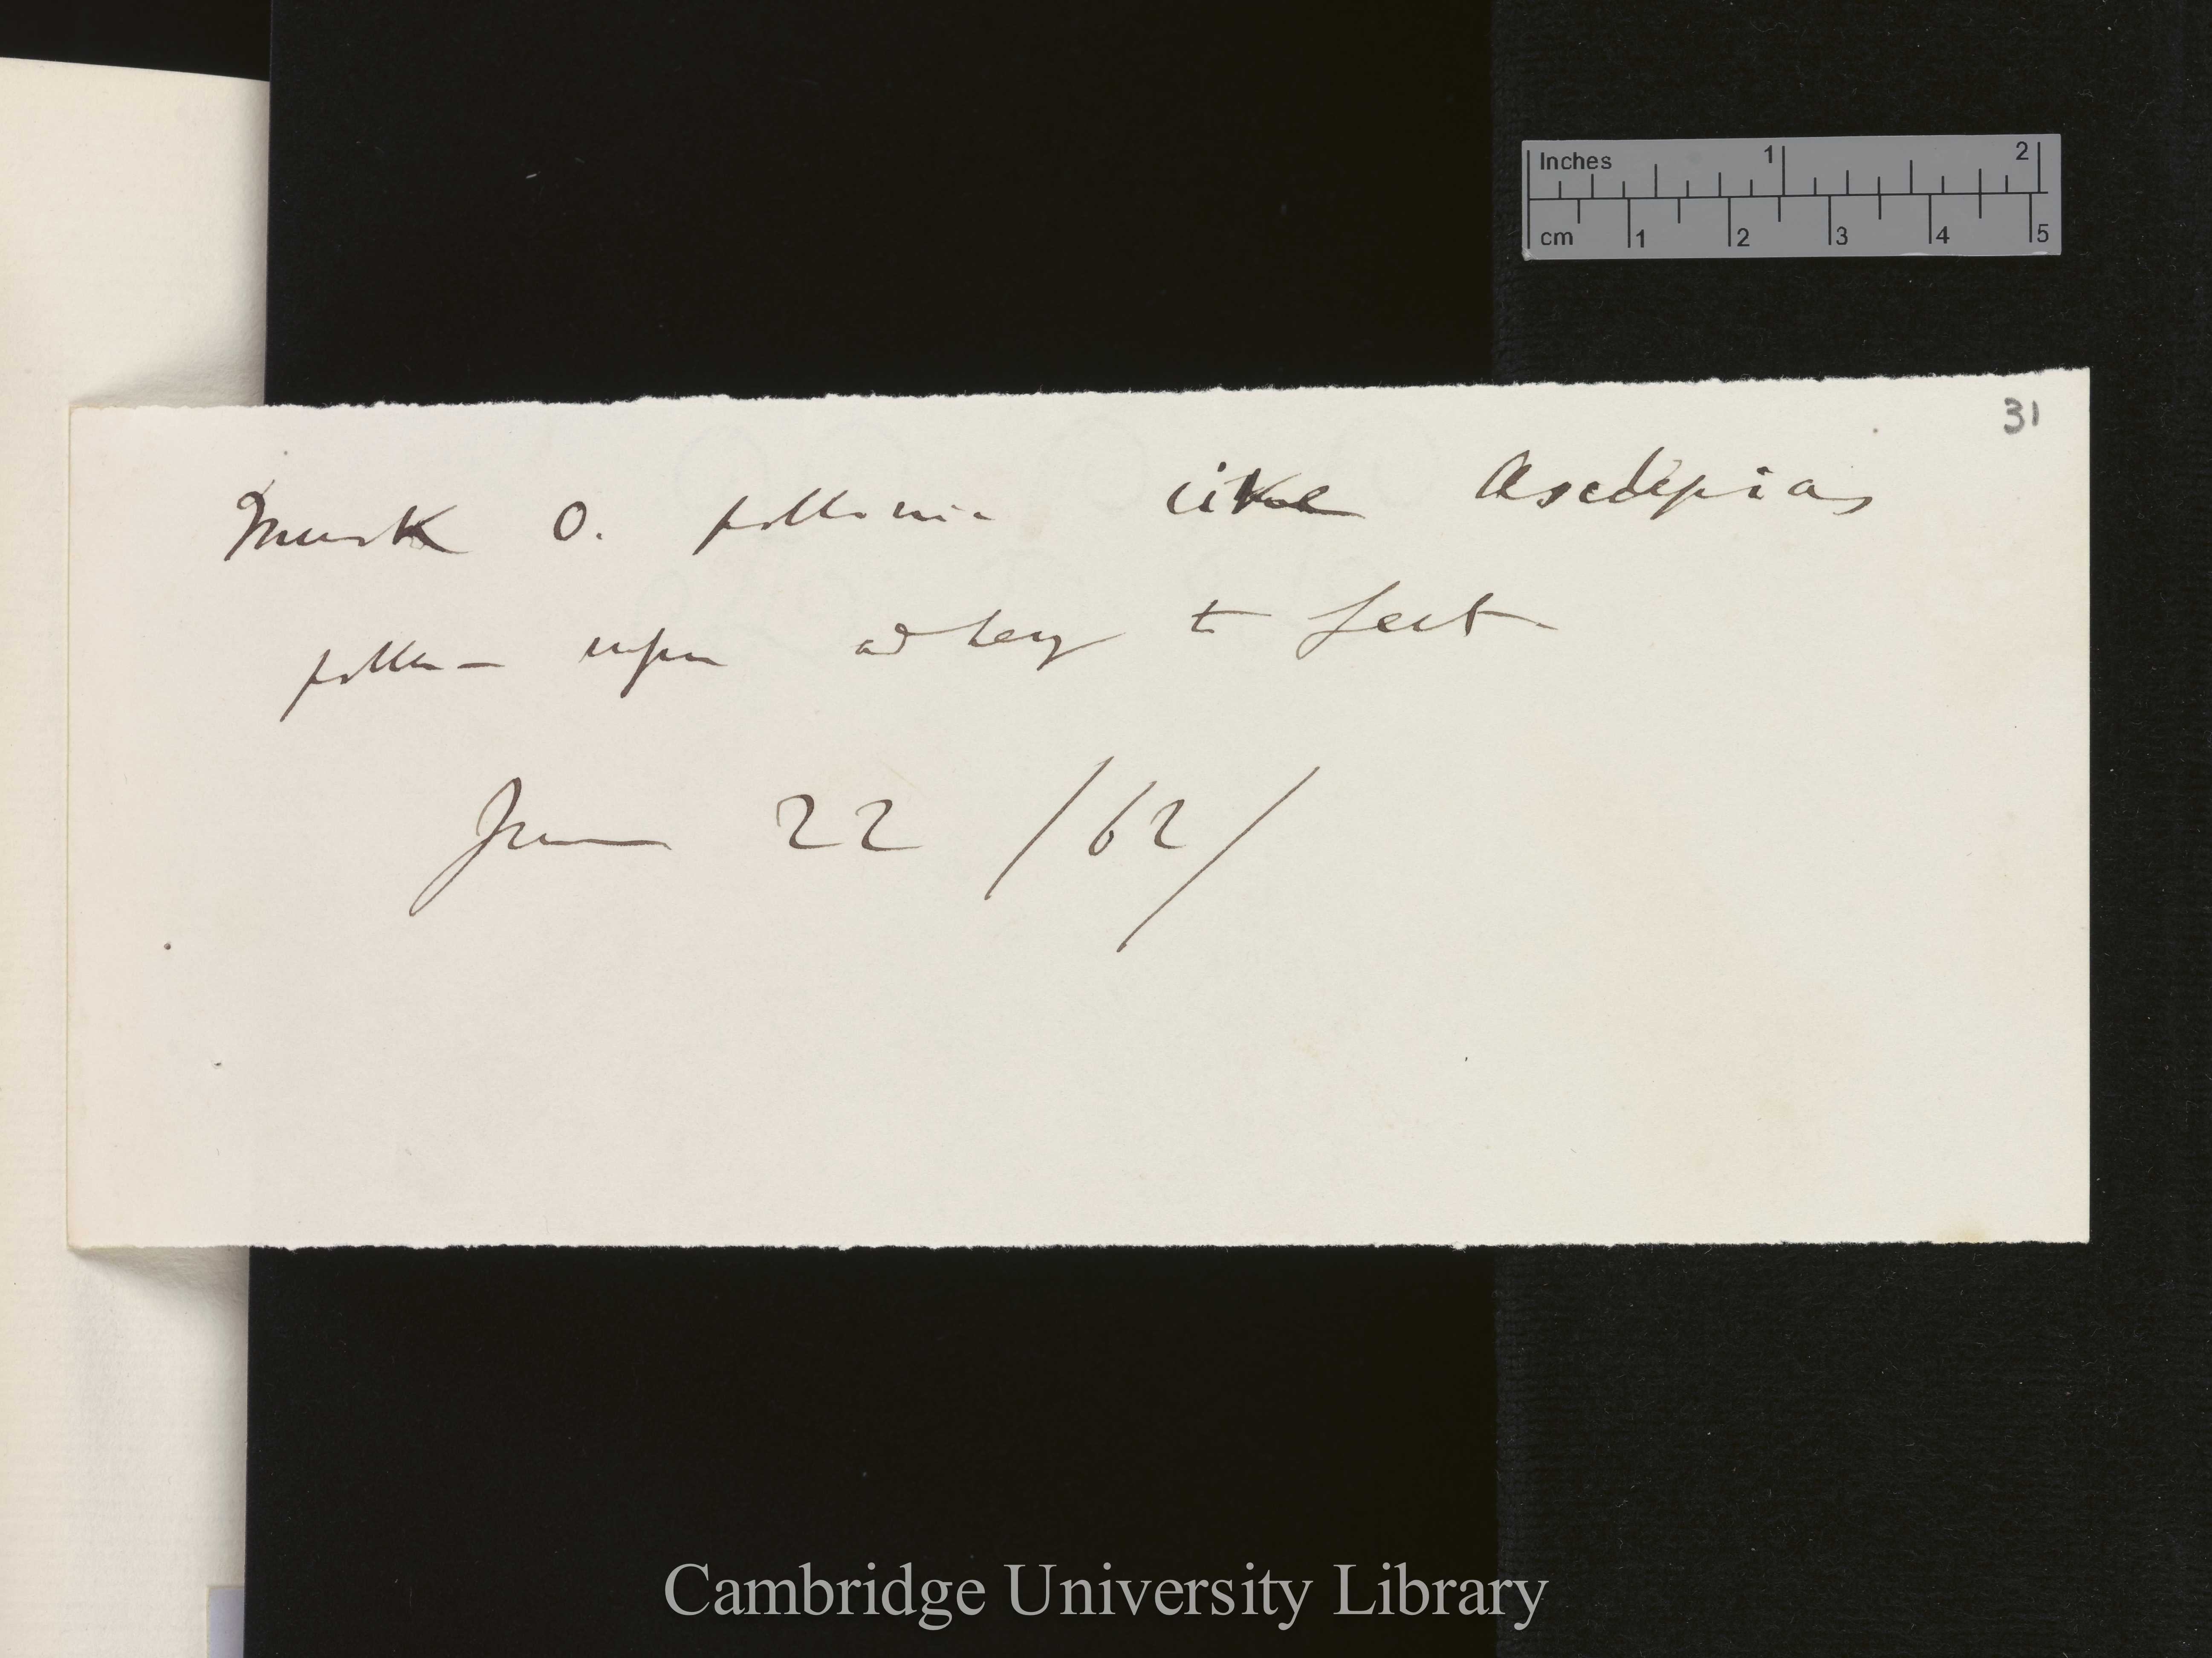 Inches 1 2
cm 1 2 3 4 5
31
Musk O. pollinia like Asclepias
pollen upon adhering to feet
June 22 /62/
Cambridge University Library